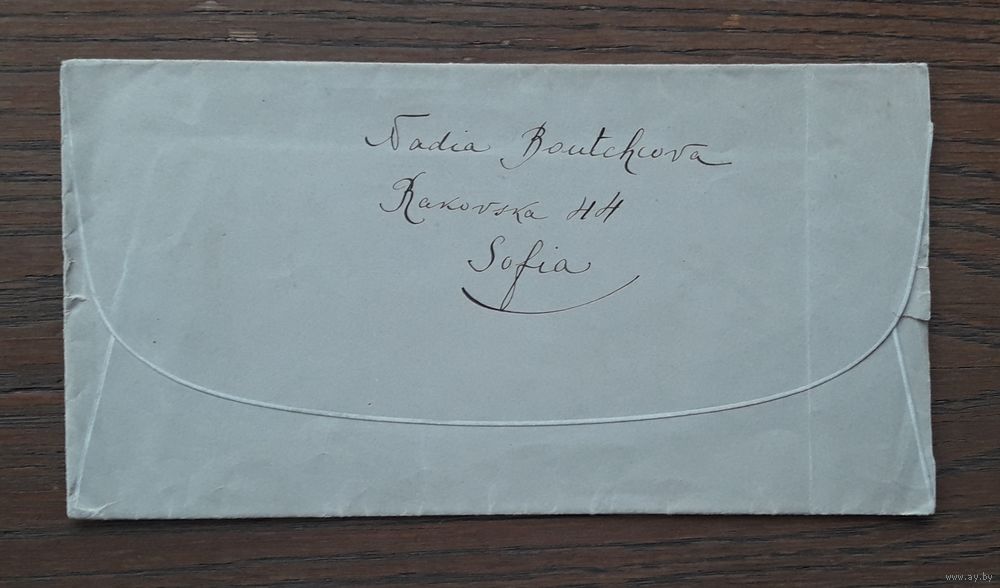 Nadia Boutchcova
Rakovska 44
Sofia
www.ay.by